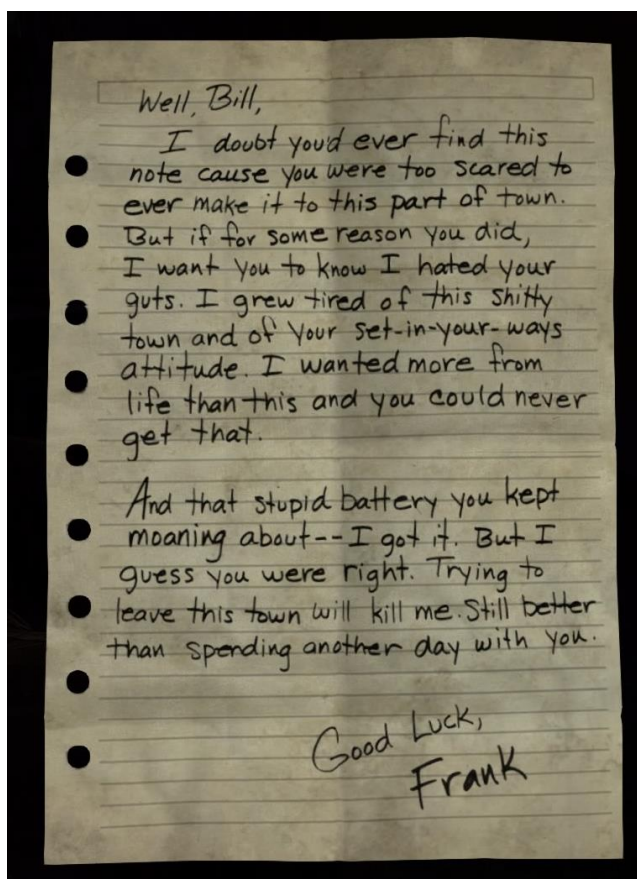 Well, Bill,
I doubt you'd ever find this
note cause you were too scared to
ever make it to this part of town.
But if for some reason you did,
I want you to know I hated your
guts. I grew tired of this shitty
town and of your set-in-your-ways
attitude. I wanted more from
life than this and you could never
get that.
And that stupid battery you kept
moaning about--I got it. But I
guess you were right. Trying to
leave this town will kill me. Still better
than spending another day with you.
Good Luck,
Frank